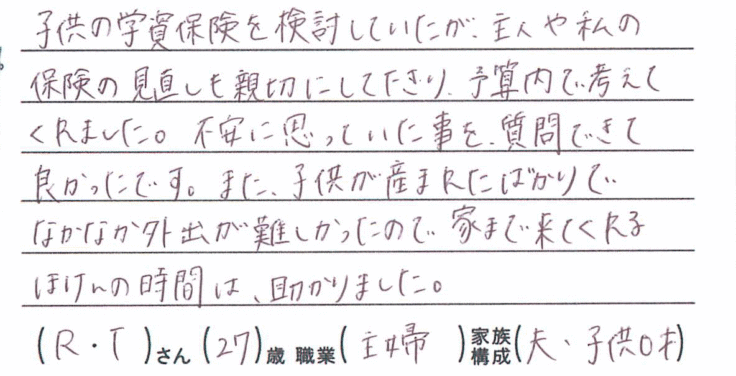 子供の学資保険を検討していたが、主人や私の
保険の見直しも親切にして下さり、予算内で考えて
くれました。不安に思っていた事を、質問できて
良かったです。また、子供が産まれたばかりで
なかなか外出が難しかったので、家まで来てくれる
ほけんの時間は、助かりました。
(R・T)さん(27)歳 職業(主婦)家族構成(夫、子供0才)